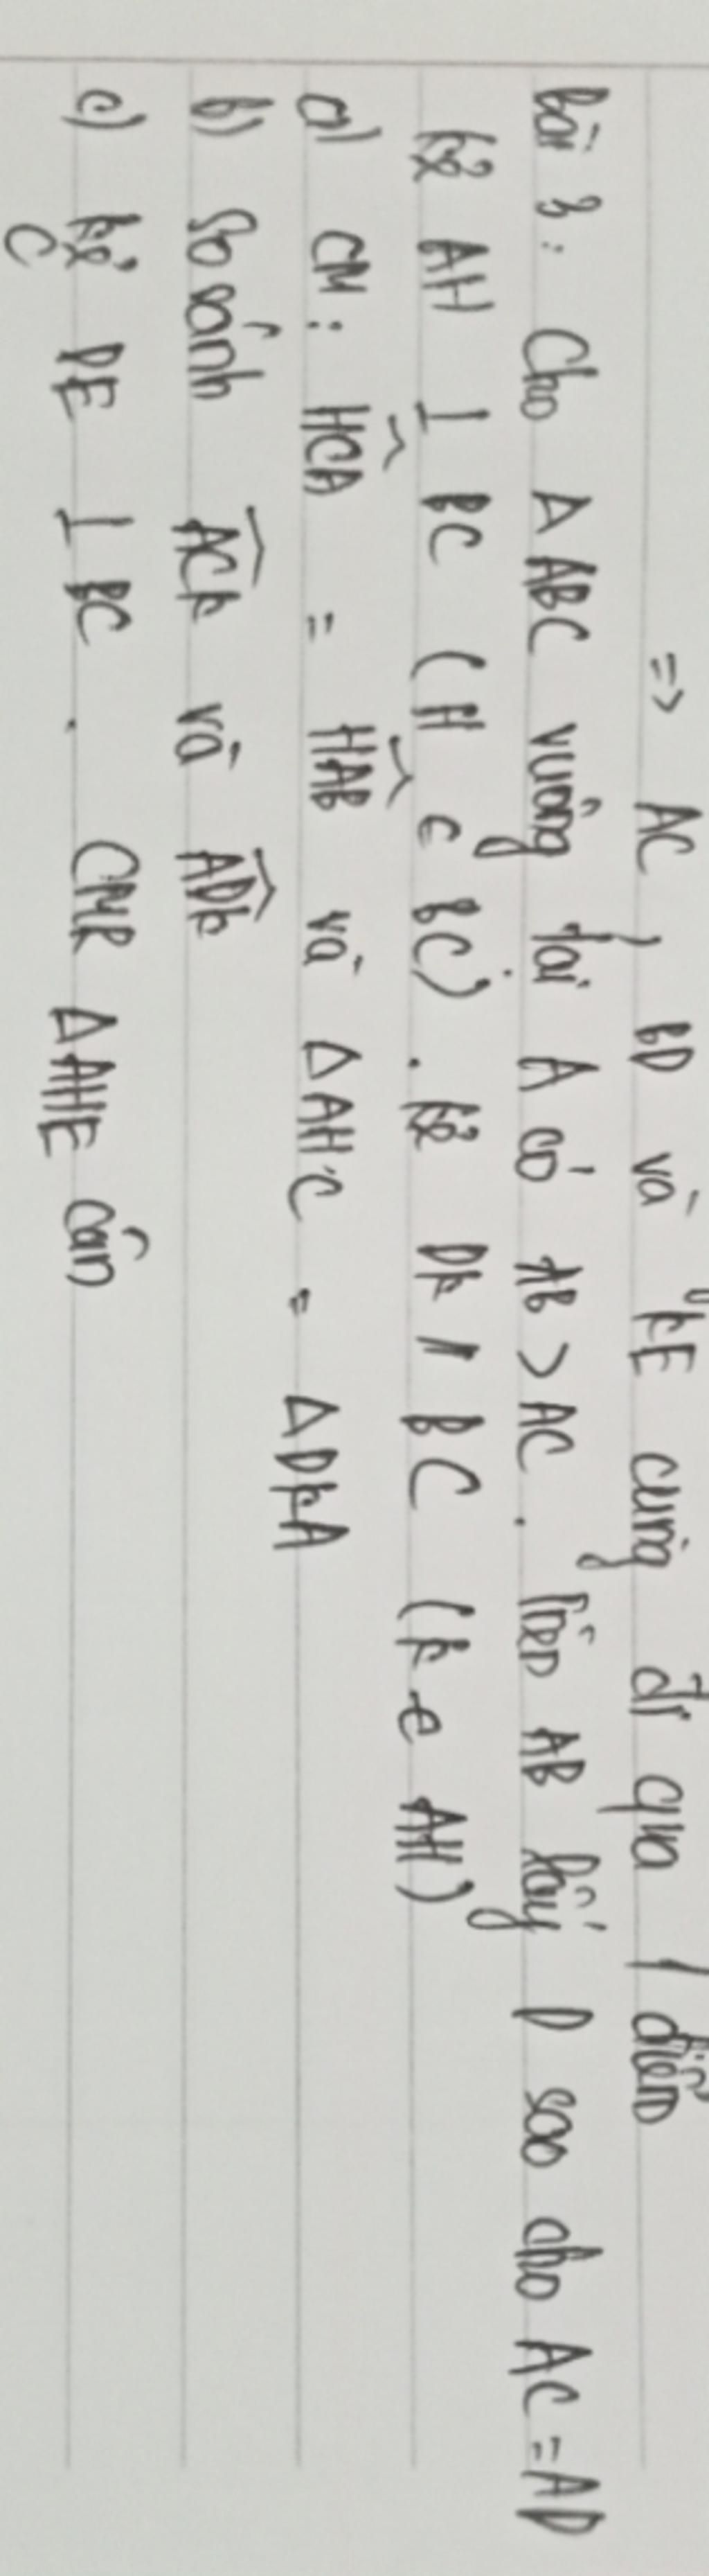 => AC, BD và KE cùng đi qua 1 điểm
Bài 3: Cho Δ ABC vuông tại A có AB > AC. Trên AB lấy D sao cho AC = AD
kẻ AH ⊥ BC (H ∈ BC). kẻ DK // BC (K ∈ AH)
a) CM: HCA = HAB và Δ AHC = Δ DKA
b) So sánh ACK và ADK
c) kẻ DE ⊥ BC. CMR Δ AHE cân